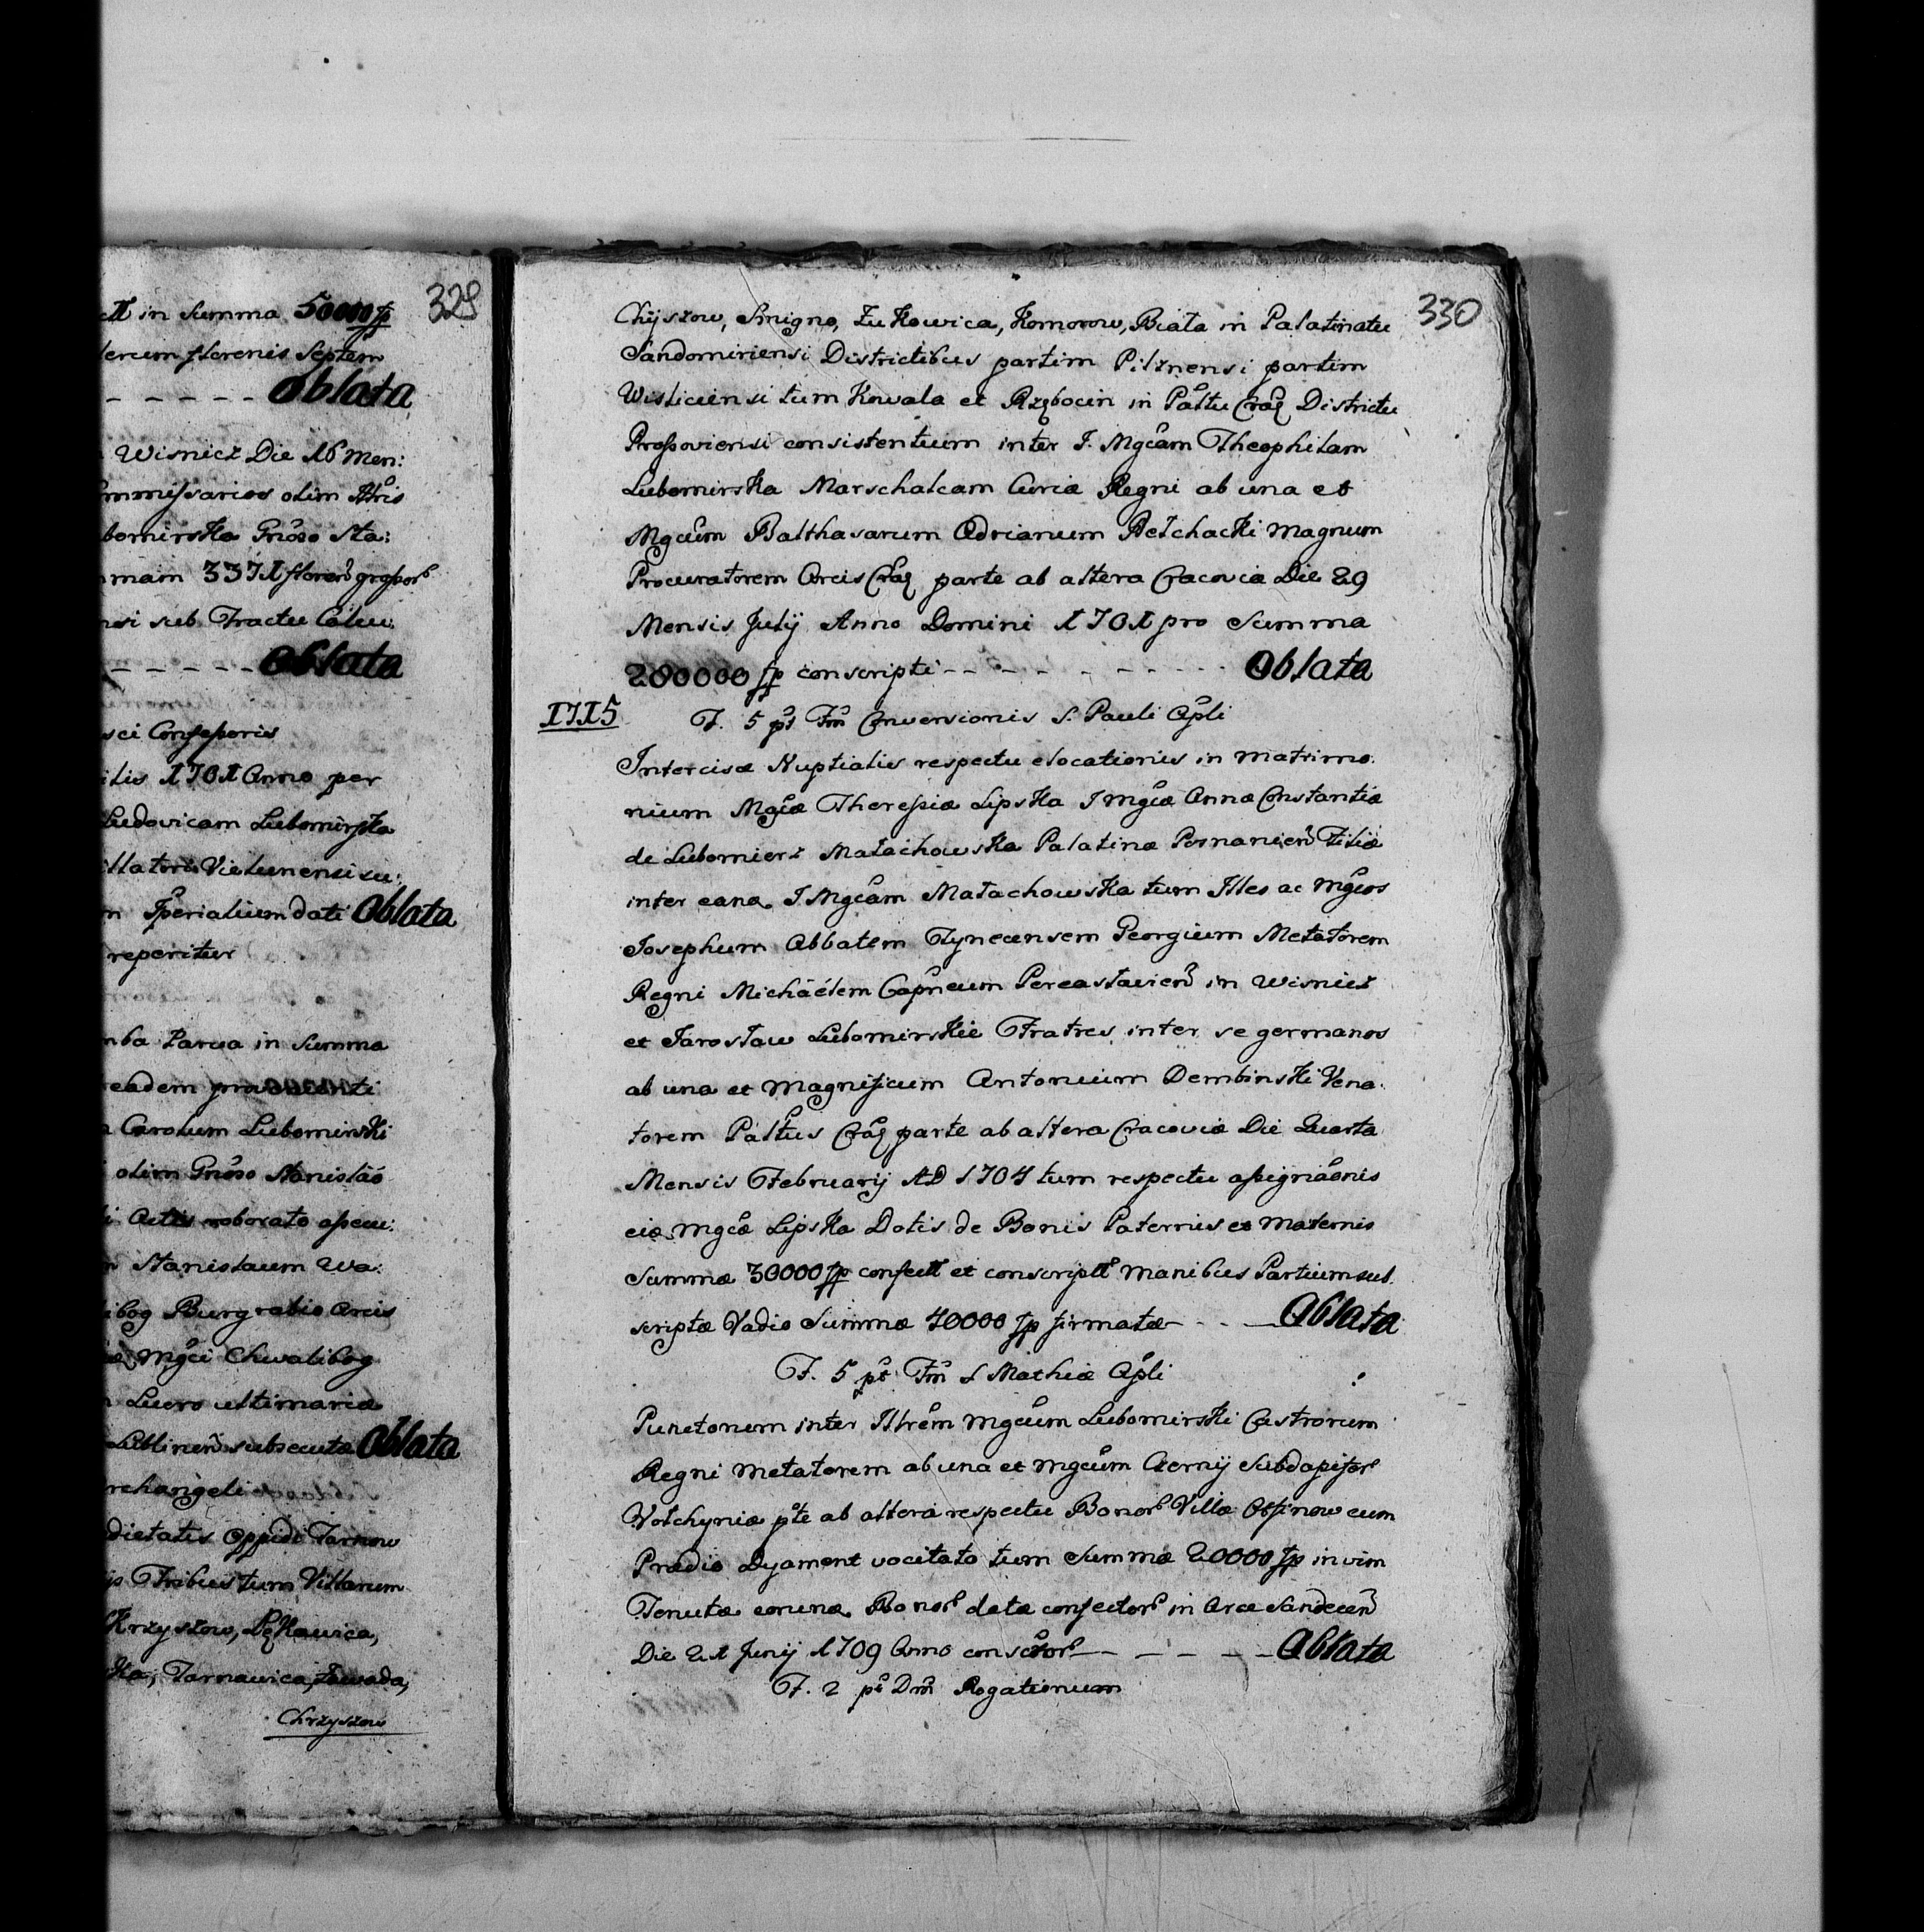 329
in Summa 50000 fp
florenis Septem
- - - - - Oblata
Wisnicz Die 16 Men:
olim Illris
Gnoso Sta:
3371 floren
sub Tractu
- - - - - Oblata
Confessoris
1701 Anno per
Ludovicam Lubomirska
Vielunensi su:
Imperialium dati Oblata
reperitur
Parua in Summa
eadem
Carolum Lubomirski
olim Gnoso Stanislao
Actis roborato assecu:
Stanislaum Wa:
Burgrabio Arcis
Mgci Chwalibog
Lucro ultimaria
subsecuta Oblata
Oppidi Tarnow
Tribus tum Villarum
Krzyszow, Lękawica,
Tarnawica, Zawada,
Chrzyszow
330
Chyszow, Smigno, Zukowica, Komorow, Biała in Palatinatu
Sandomiriensi Districtibus partim Pilznensi partim
Wisliciensi tum Kowala et Rzębocin in Paltu Crac Districtu
Prossoviensi consistentium inter J. Mgcam Theophilam
Lubomirska Marschalcam Curiæ Regni ab una et
Mgcum Balthasarum Adrianum Rełchacki Magnum
Procuratorem Arcis Crac parte ab altera Cracoviæ Die 29
Mensis Julij Anno Domini 1701 pro Summa
200000 fp conscripti - - - - - - - Oblata
1715
F. 5 pt Fm Conversionis S. Pauli Apli
Intercisæ Nuptialis respectu elocationis in matrimo:
nium Mgcæ Theresiæ Lipska J Mgcæ Annæ Constantiæ
de Lubomierz Małachowska Palatinæ Posnanien Filiæ
inter eand. J Mgcam Małachowska tum Illes ac Mgcos
Josephum Abbatem Tynecensem Georgium Metatorem
Regni Michäélem Capneum Pereaslavien in Wisnicz
et Jarosław Lubomirskie Fratres inter se germanos
ab una et Magnificum Antonium Dembinski Vena:
torem Paltus Crac parte ab altera Cracoviæ Die Quarta
Mensis Februarij AD 1704 tum respectu assignaonis
eid. Mgcæ Lipska Dotis de Bonis Paternis et Maternis
Summæ 30000 fp confect et conscript Manibus Partium sub
scriptæ Vadio Summæ 40000 fp firmatæ - - - Oblata
F. 5 pt Fm S Mathiæ Apli
Punctorum inter Illrem Mgcum Lubomirski Castrorum
Regni Metatorem ab una et Mgcum Czernÿ Subdapifer
Volchyniæ pte ab altera respectu Bonor Villæ Ossinow cum
Prædio Dyament vocitato tum Summæ 20000 fp in vim
Tenutæ eorund. Bonor datæ confector in Arce Sandecen
Die 21 Junij 1709 Anno conscror - - - - - Oblata
F. 2 pt Dm Rogationum